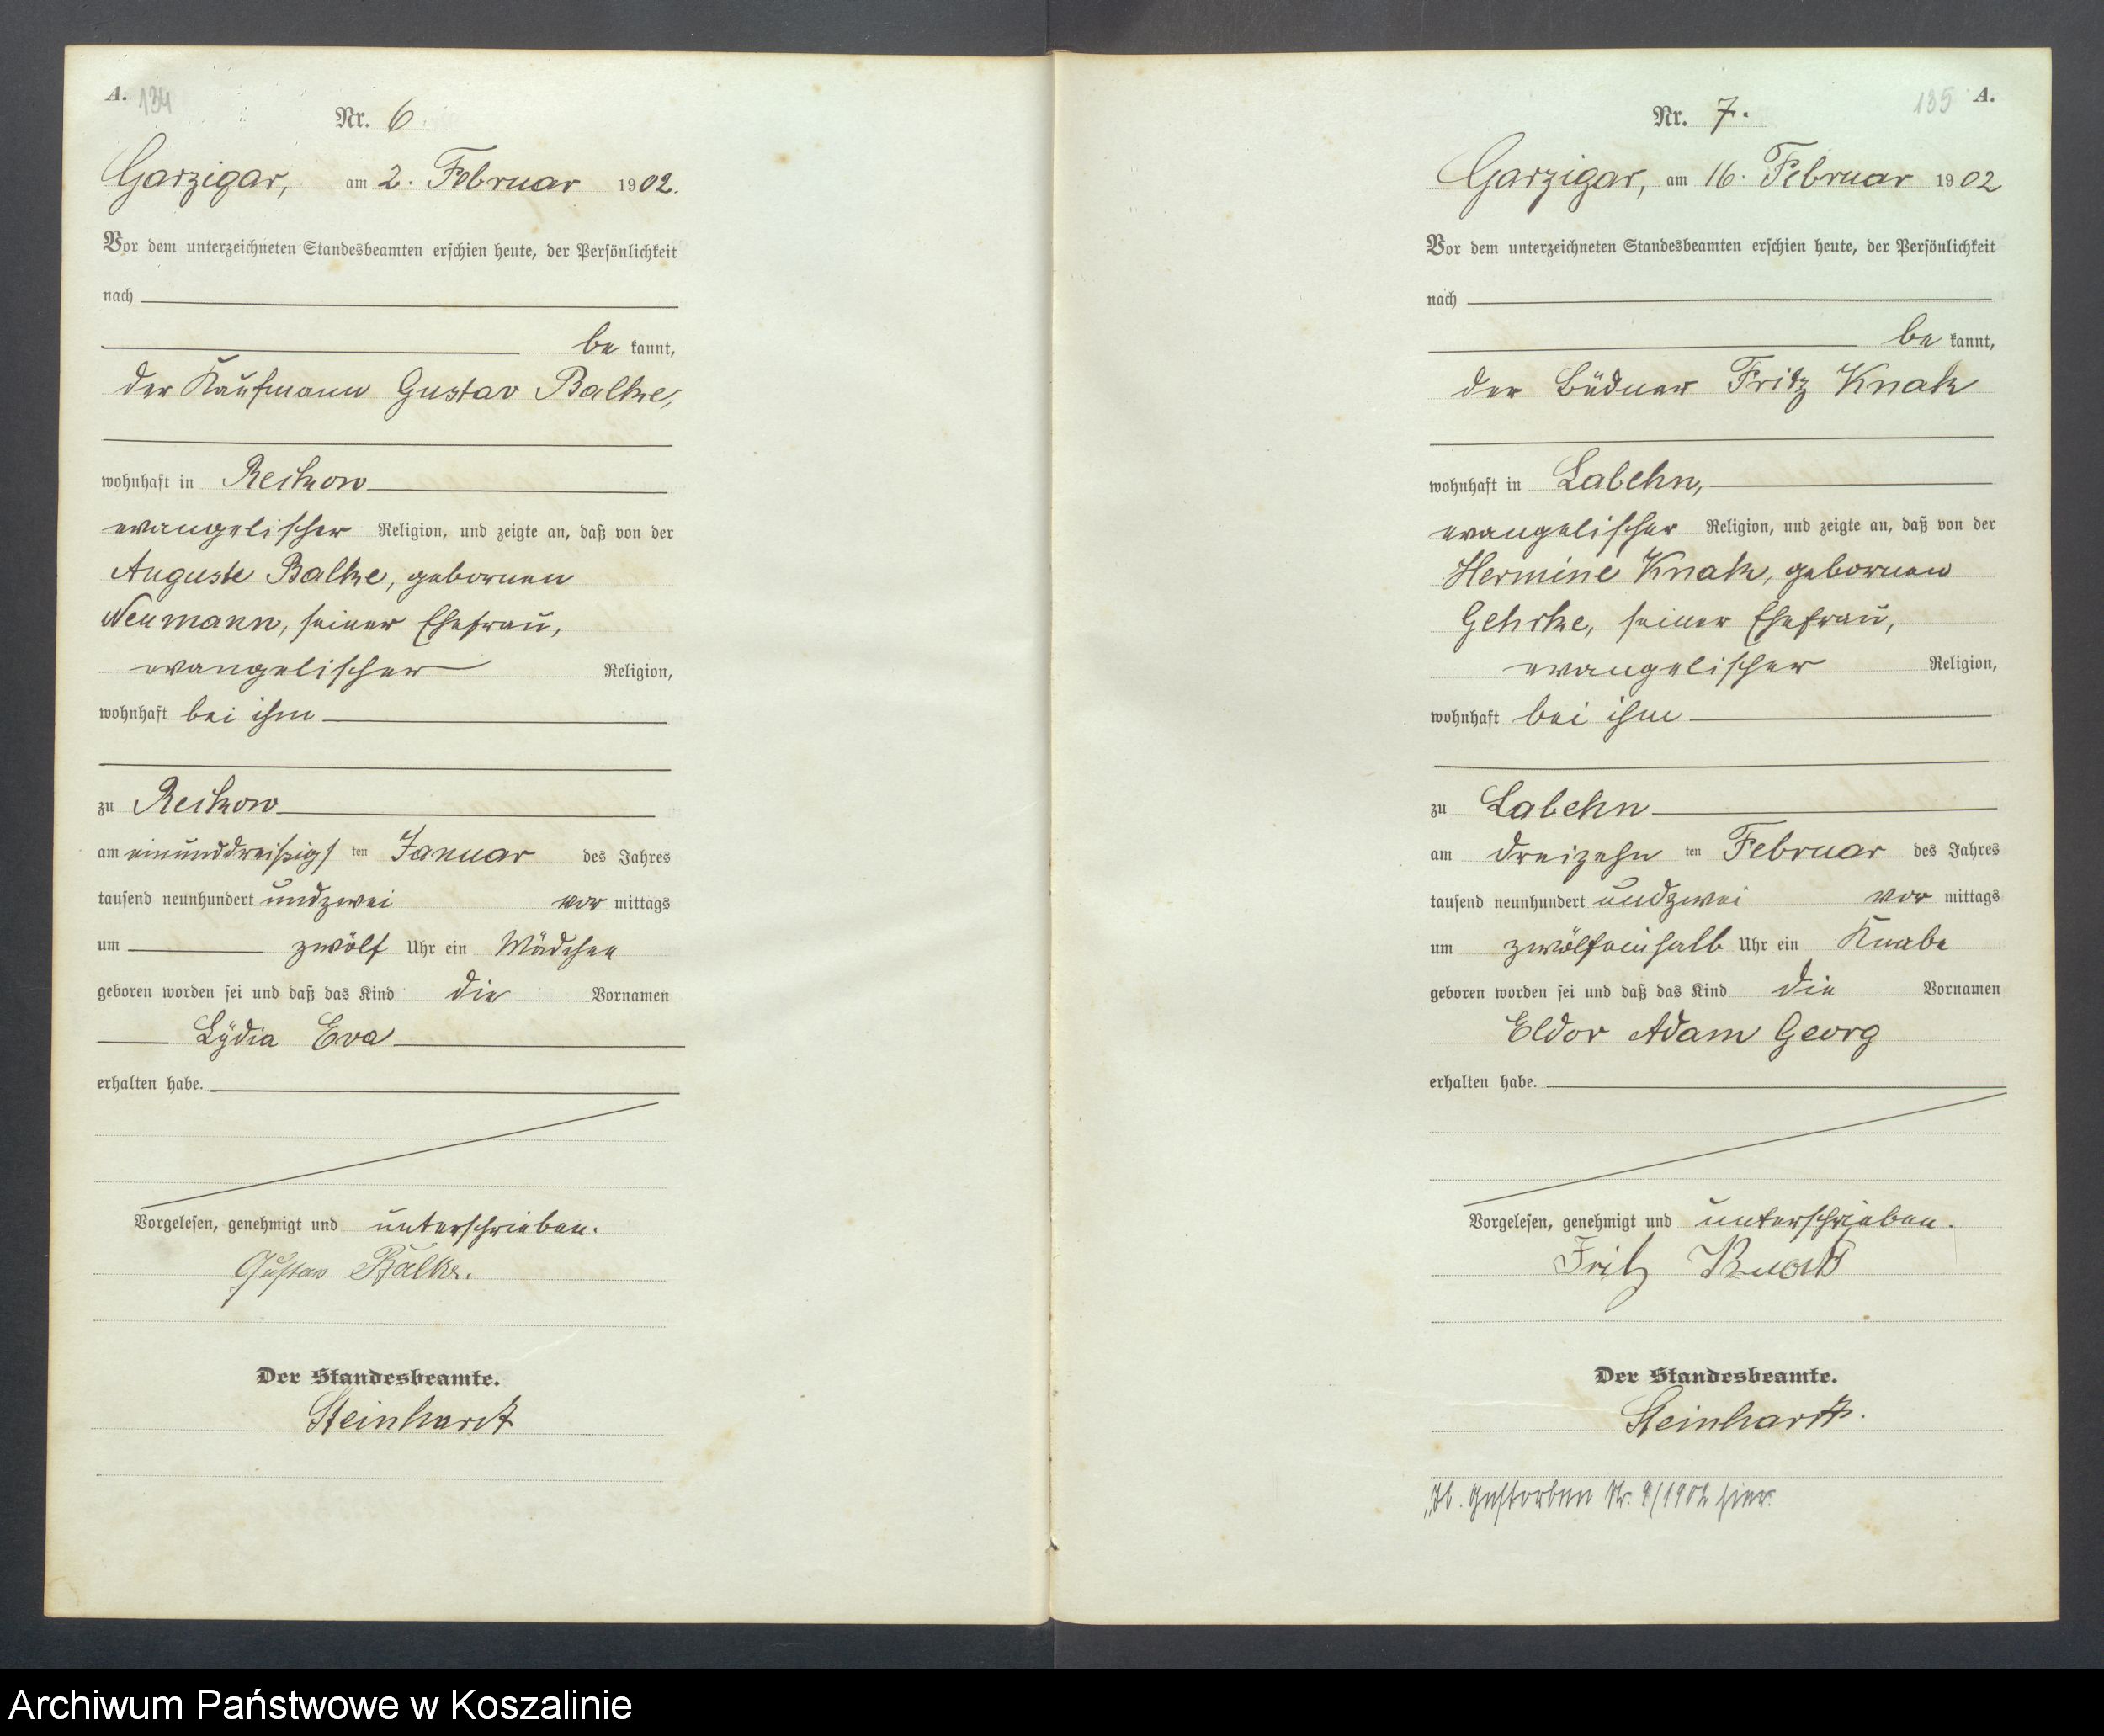 A. 134
Nr. 6.
Garzigar, am 2. Februar 1902.
Vor dem unterzeichneten Standesbeamten erschien heute, der Persönlichkeit
nach
be kannt,
der Kaufmann Gustav Balke,
wohnhaft in Reckow
evangelischer Religion, und zeigte an, daß von der
Auguste Balke, geborenen
Neumann, seiner Ehefrau,
evangelischer Religion,
wohnhaft bei ihm
zu Reckow
am einunddreißigst ten Januar des Jahres
tausend neunhundert undzwei vor mittags
um zwölf Uhr ein Mädchen
geboren worden sei und daß das Kind die Vornamen
Lydia Eva
erhalten habe.
Vorgelesen, genehmigt und unterschrieben.
Gustav Balke.
Der Standesbeamte.
Steinhardt
135 A.
Nr. 7.
Garzigar, am 16. Februar 1902
Vor dem unterzeichneten Standesbeamten erschien heute, der Persönlichkeit
nach
be kannt,
der Büdner Fritz Knak
wohnhaft in Labehn,
evangelischer Religion, und zeigte an, daß von der
Hermine Knak, geborenen
Gehrke, seiner Ehefrau,
evangelischer Religion,
wohnhaft bei ihm
zu Labehn
am dreizehn ten Februar des Jahres
tausend neunhundert undzwei vor mittags
um zwölfeinhalb Uhr ein Knabe
geboren worden sei und daß das Kind die Vornamen
Eldor Adam Georg
erhalten habe.
Vorgelesen, genehmigt und unterschrieben.
Fritz Knak
Der Standesbeamte.
Steinhardt.
gestorben Nr. 9/1902 hier.
Archiwum Państwowe w Koszalinie